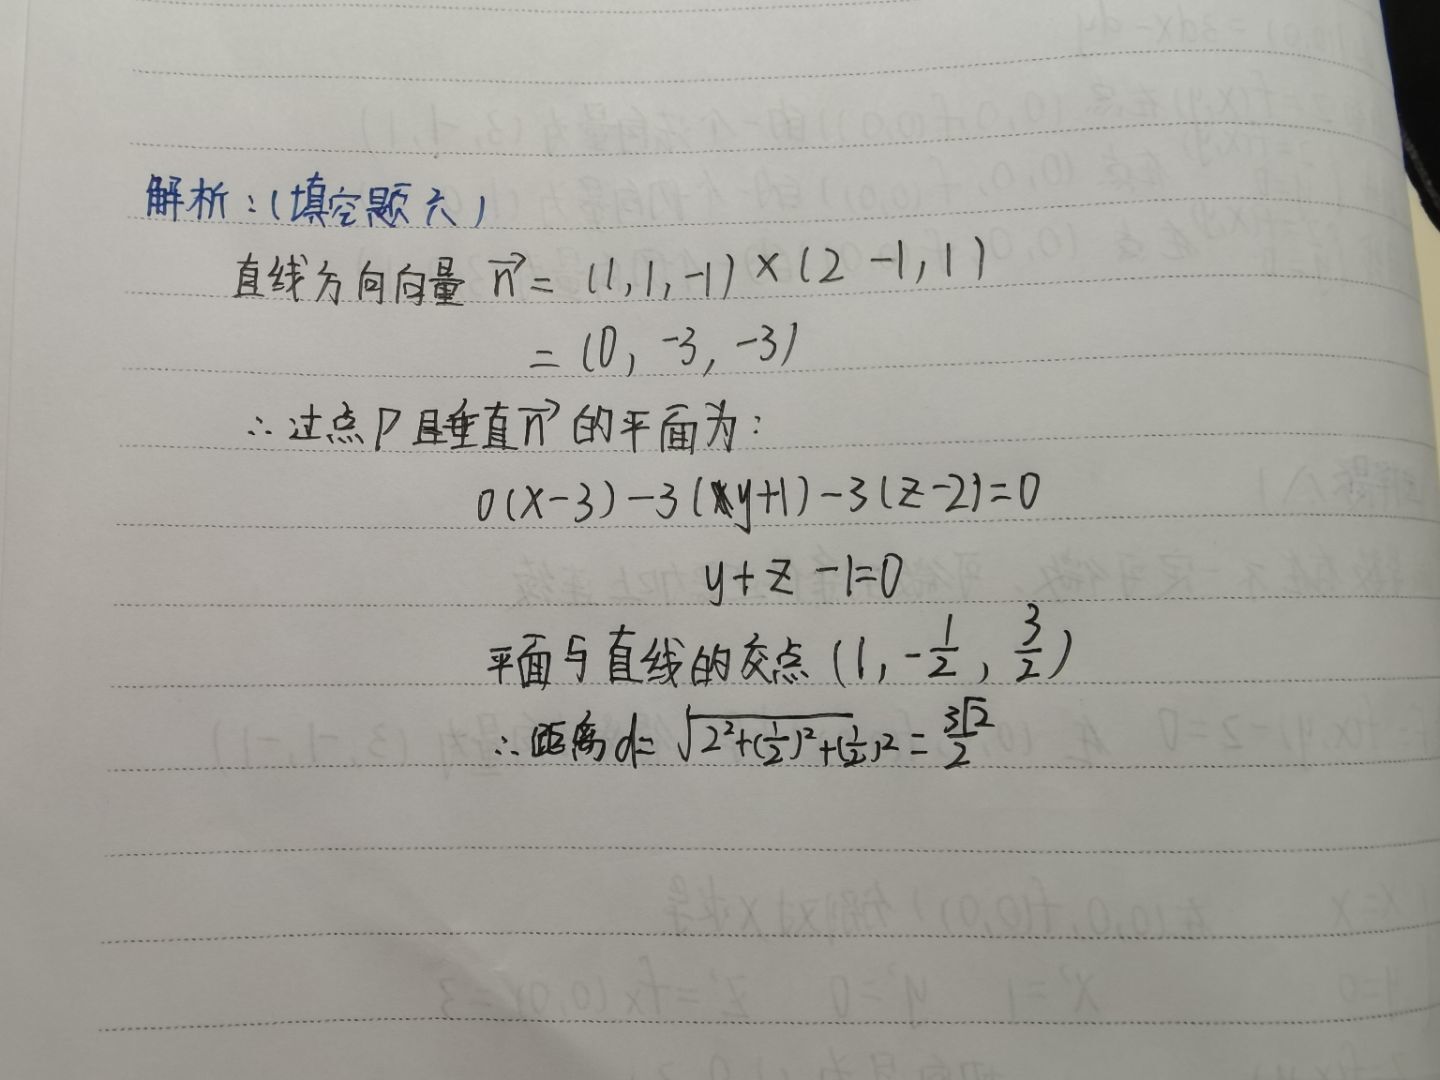 解析：（填空题六）
直线方向向量 n⃗ = (1, 1, -1) × (2 -1, 1)
= (0, -3, -3)
∴ 过点P且垂直n⃗ 的平面为：
0(x-3) -3(y+1) -3(z-2)=0
y+z-1=0
平面与直线的交点 (1, -1/2, 3/2)
∴ 距离d= √(2²+(1/2)²+(1/2)²) = 3√2/2